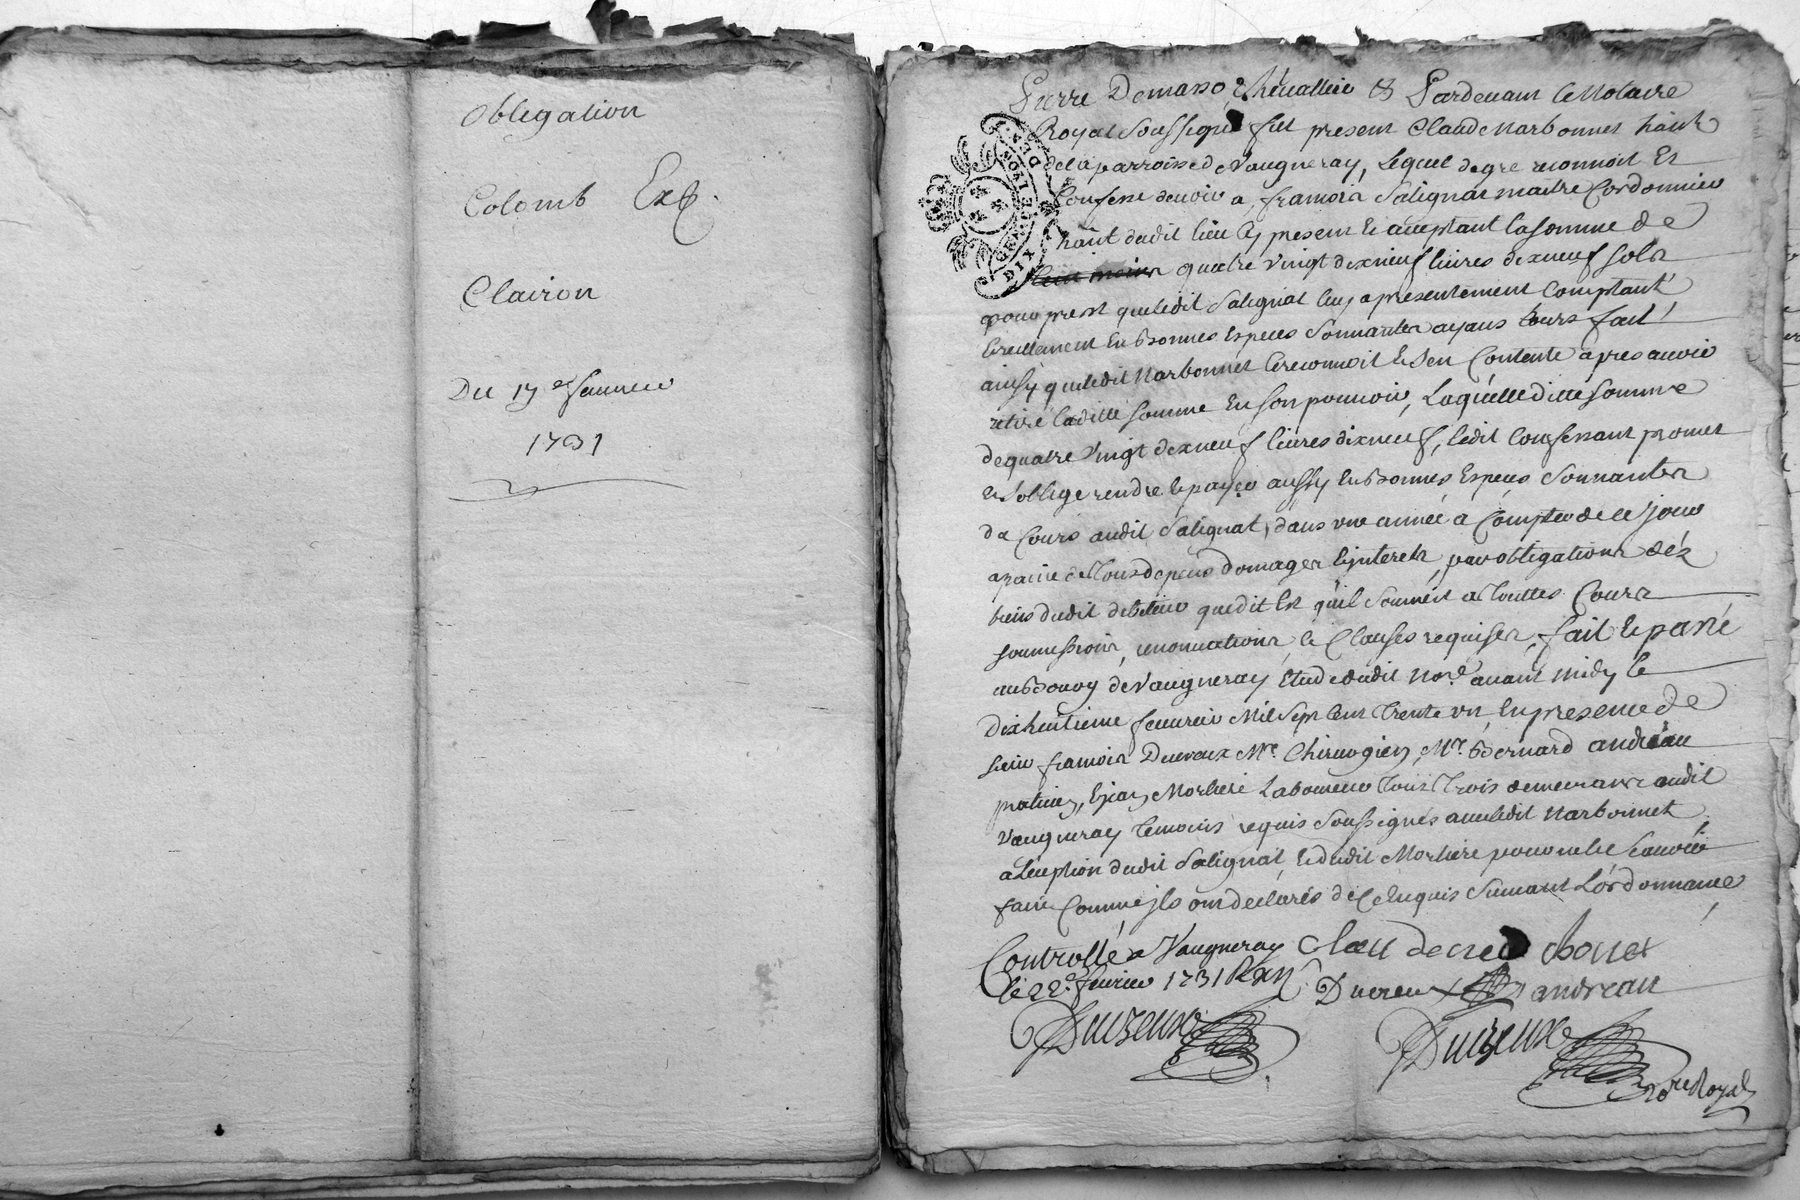 Obligation
Colomb Exp.
Clairon
Du 17e Janvier
1731
Pierre Demasso Chevallier & Pardevant le Notaire
Royal Soussigné fut present Claude Narbonnet habt
de la parroisse de Vaugneray, Lequel de gré reconnoit Et
Confesse devoir a françois Salignat maitre Cordonnier
habt dudit lieu Cy present et acceptant la somme de
quatre vingt dixneuf livres dixneuf sols
pour prest que ledit Salignat luy a presentement Comptant
Et reellement En bonnes Especes Sonnantes ayans Cours fait
ainsy que ledit Narbonnet le reconnoit Et s'en Contente apres avoir
retiré laditte somme En son pouvoir, Laquelle ditte somme
de quatre vingt dixneuf livres dixneuf, ledit Confessant promet
et s'oblige rendre Et payer aussy En bonnes Especes Sonnantes
Cours audit Salignat, dans une année a Compter de ce jour
a paine de Tous depens domages Et interets, par obligations dés
biens dudit debiteur que dit Est qu'il soumets a Touttes Cours
soumissions, renonciations, et Clauses requises, fait et passé
au Bourg de Vaugneray Etude dudit Nore avant midy le
Dixhuitieme fevrier Mil sept cent Trente un En presence de
sieur françois Ducreux Mre Chirurgien, Mr Bernard andréau
praticien, Et jean Morliere Laboureur Tous Trois demeurans audit
Vaugneray Temoins requis Soussignés avec ledit Narbonnet
a L'exeption dudit Salignat, Et dudit Morliere pour ne le Scavoir
faire Comme jls ont declarés de Ce Enquis Suivant L'ordonnance
Controllé a Vaugneray
le 22e fevrier 1731
Ducreux andreau
Duizeux
Duizeux
Nore Royal
DIX